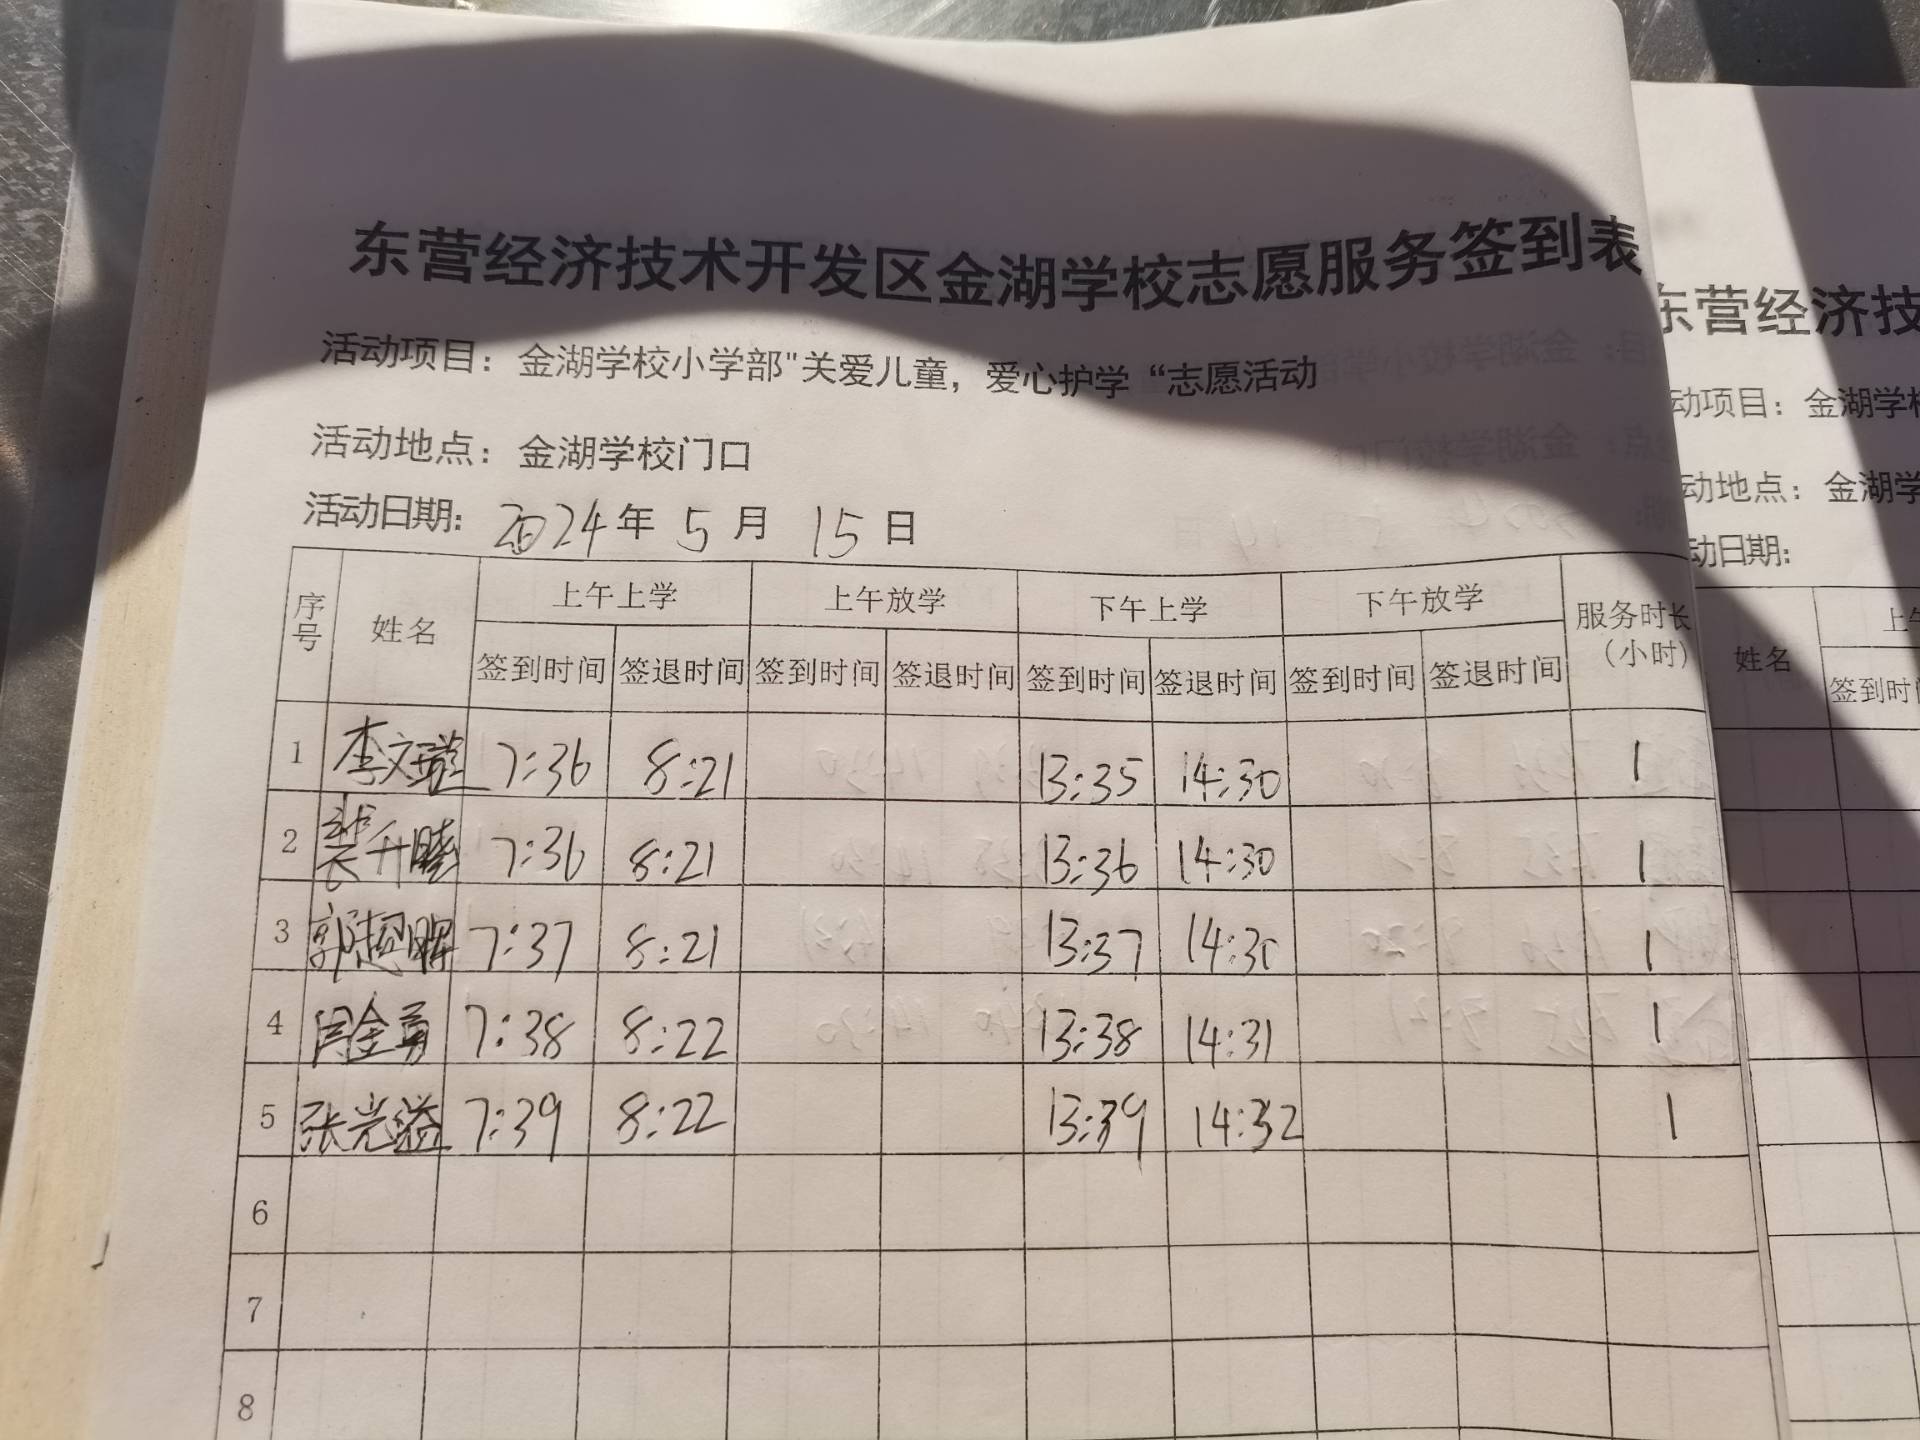 东营经济技术开发区金湖学校志愿服务签到表
活动项目：金湖学校小学部"关爱儿童，爱心护学“志愿活动
活动地点：金湖学校门口
活动日期：2024年 5 月 15 日
序号 姓名 上午上学 上午放学 下午上学 下午放学 服务时长（小时）
签到时间 签退时间 签到时间 签退时间 签到时间 签退时间 签到时间 签退时间
1 李文璇 7:36 8:21 13:35 14:30 1
2 裴升晓 7:36 8:21 13:36 14:30 1
3 郭超 7:37 8:21 13:37 14:30 1
4 闫金勇 7:38 8:22 13:38 14:31 1
5 张光溢 7:39 8:22 13:39 14:32 1
6
7
8
东营经济技
动项目：金湖学校
动地点：金湖学
动日期：
姓名 上午
签到时间